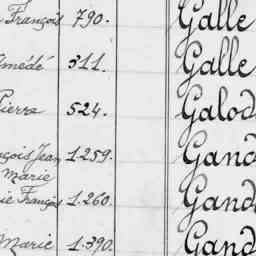 François 790. Galle
Amédé 311. Galle
Pierra 524. Galod
nçois Jean 1.259. Gand
Marie
ie François 1.260. Gand
Marie 1.390. Gand